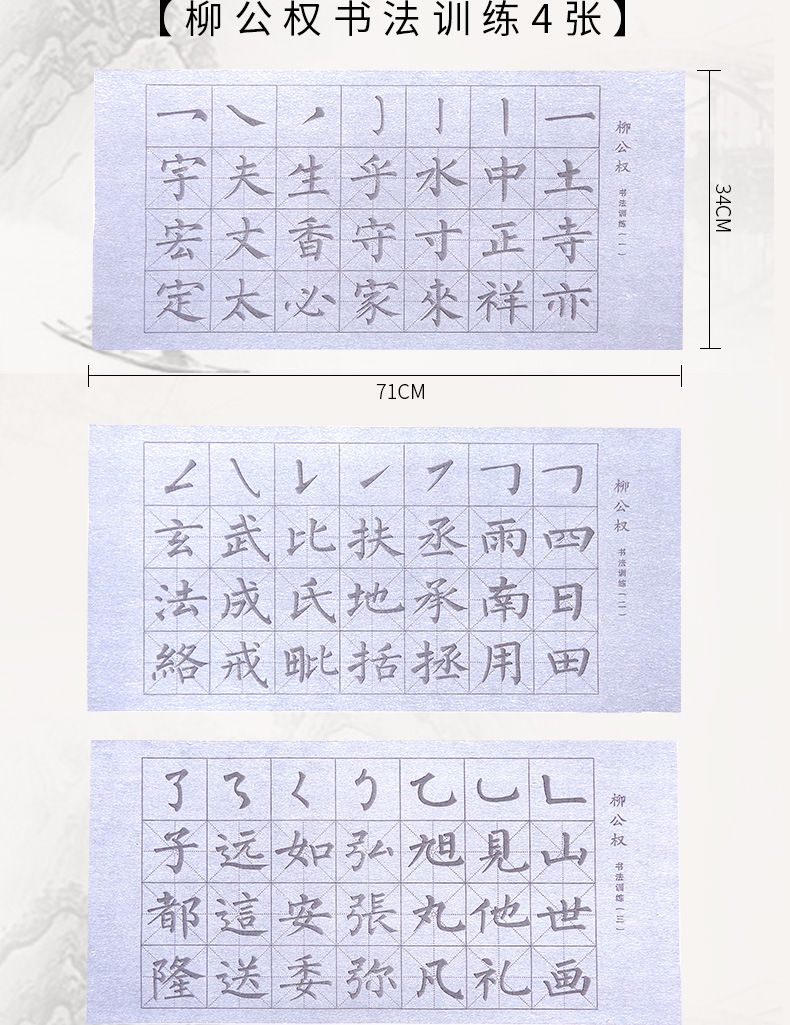 【柳公权书法训练4张】
一 ㇏ ㇒ 亅 丨 丨 一
宇 夫 生 乎 水 中 土
宏 丈 香 守 寸 正 寺
定 太 必 家 來 祥 亦
柳公权
书法训练(一)
34CM
71CM
玄 武 比 扶 丞 雨 四
法 成 氏 地 承 南 日
絡 戒 毗 括 拯 用 田
柳公权
书法训练(二)
子 远 如 弘 旭 見 山
都 這 安 張 丸 他 世
隆 送 委 弥 凡 礼 画
柳公权
书法训练(三)